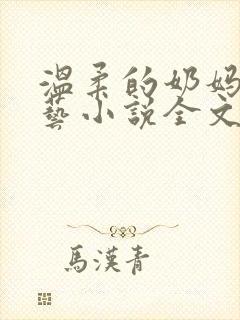 温柔的奶妈
艺小說全文
馬漢青